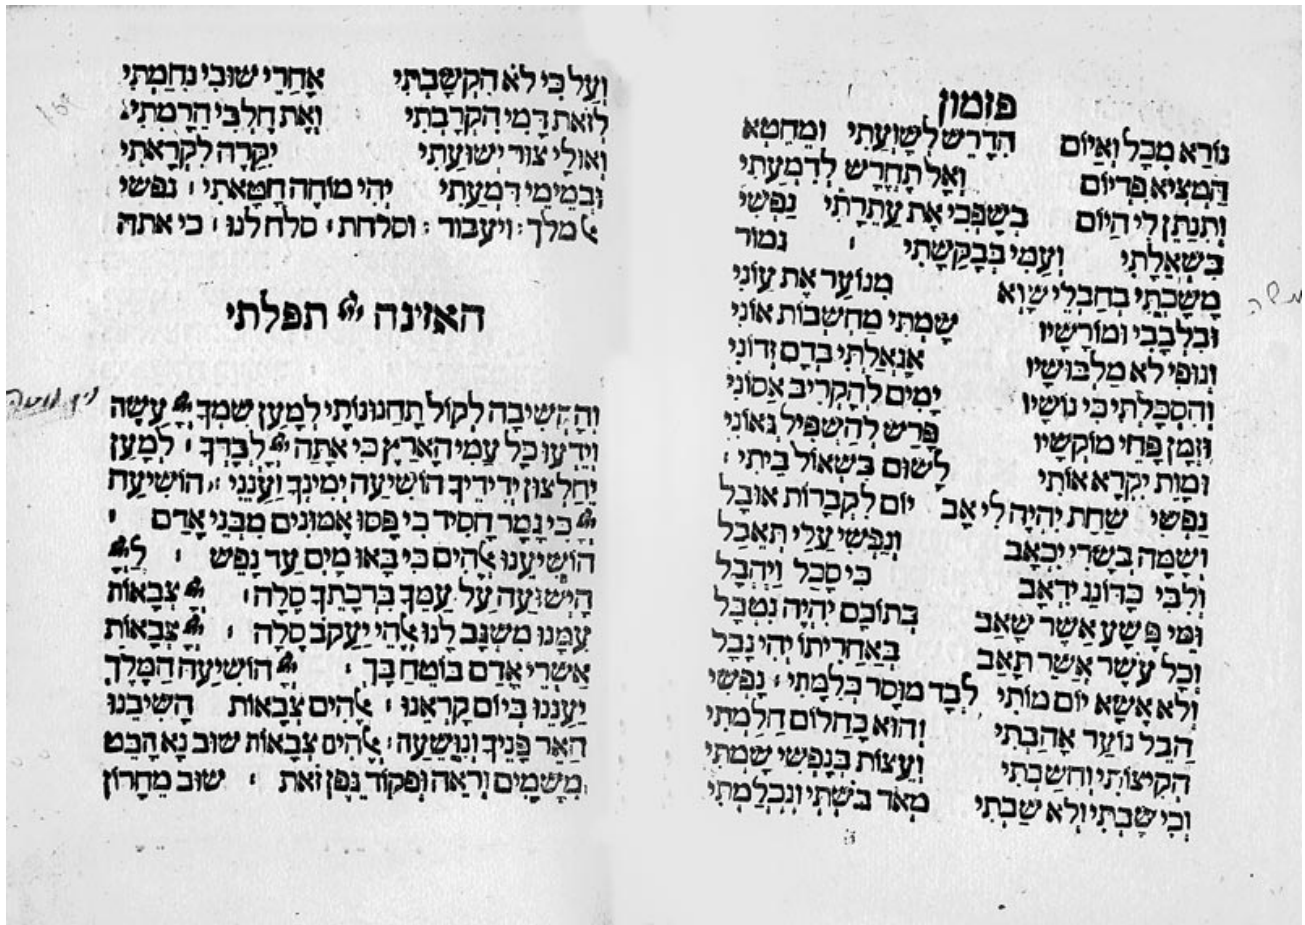 פזמון
נורא מכל ואיום הדרש לשועתי ומחטא
המציא פדיום ואל תחרש לדמעתי
ותנתן לי היום בשפכי את עתרתי נפשי
בשאלתי ועמי בבקשתי : נמור
משכתי בחבלי שוא מנוער את עוני
ובלבבי ומורשיו שמתי מחשבות אוני
וגופי לא מלבושיו אגאלתי בדם זדוני
והסכלתי כי נושיו ימים להקריב אסוני
וזמן פחי מוקשיו פרש להשפיל גאוני
ומות יקרא אותי לשום בשאול ביתי :
נפשי שחת יהיה לי אב יום לקברות אובל
ושמה בשרי יכאב ונפשי עלי תאבל
ולבי כדונג ידאב כי סכל ויהבל
ומי פשע אשר שאב בתוכם יהיה נטבל
וכל עשר אשר תאב באחריתו יהי נבל
ולא אשא יום מותי לבד מוסר כלמתי : נפשי
הבל נוער אהבתי והוא כחלום חלמתי
הקיצותי וחשבתי ועצות בנפשי שמתי
וכי שבתי ולא שבתי מאד בשתי ונכלמתי
ועל כי לא הקשבתי אחרי שובי נחמתי
לזאת דמי הקרבתי ואת חלבי הרמתי
ואולי צור ישועתי יקרה לקראתי
ובמימי דמעתי יהי מוחה חטאתי : נפשי
מלך : ויעבור : וסלחת : סלח לנו : כי אתה
האזינה ייי תפלתי
והקשיבה לקול תחנונותי למען שמך ייי עשה
וידעו כל עמי הארץ כי אתה ייי לבדך : למען
יחלצון ידידיך הושיעה ימינך וענני : הושיעה
ייי כי גמר חסיד כי פסו אמונים מבני אדם :
הושיענו אלהים כי באו מים עד נפש : לייי
הישועה על עמך ברכתך סלה : ייי צבאות
עמנו משגב לנו אלהי יעקב סלה : ייי צבאות
אשרי אדם בוטח בך : ייי הושיעה המלך
יעננו ביום קראנו : אלהים צבאות השיבנו
האר פניך ונושעה : אלהים צבאות שוב נא הבט
משמים וראה ופקוד גפן זאת : שוב מחרון